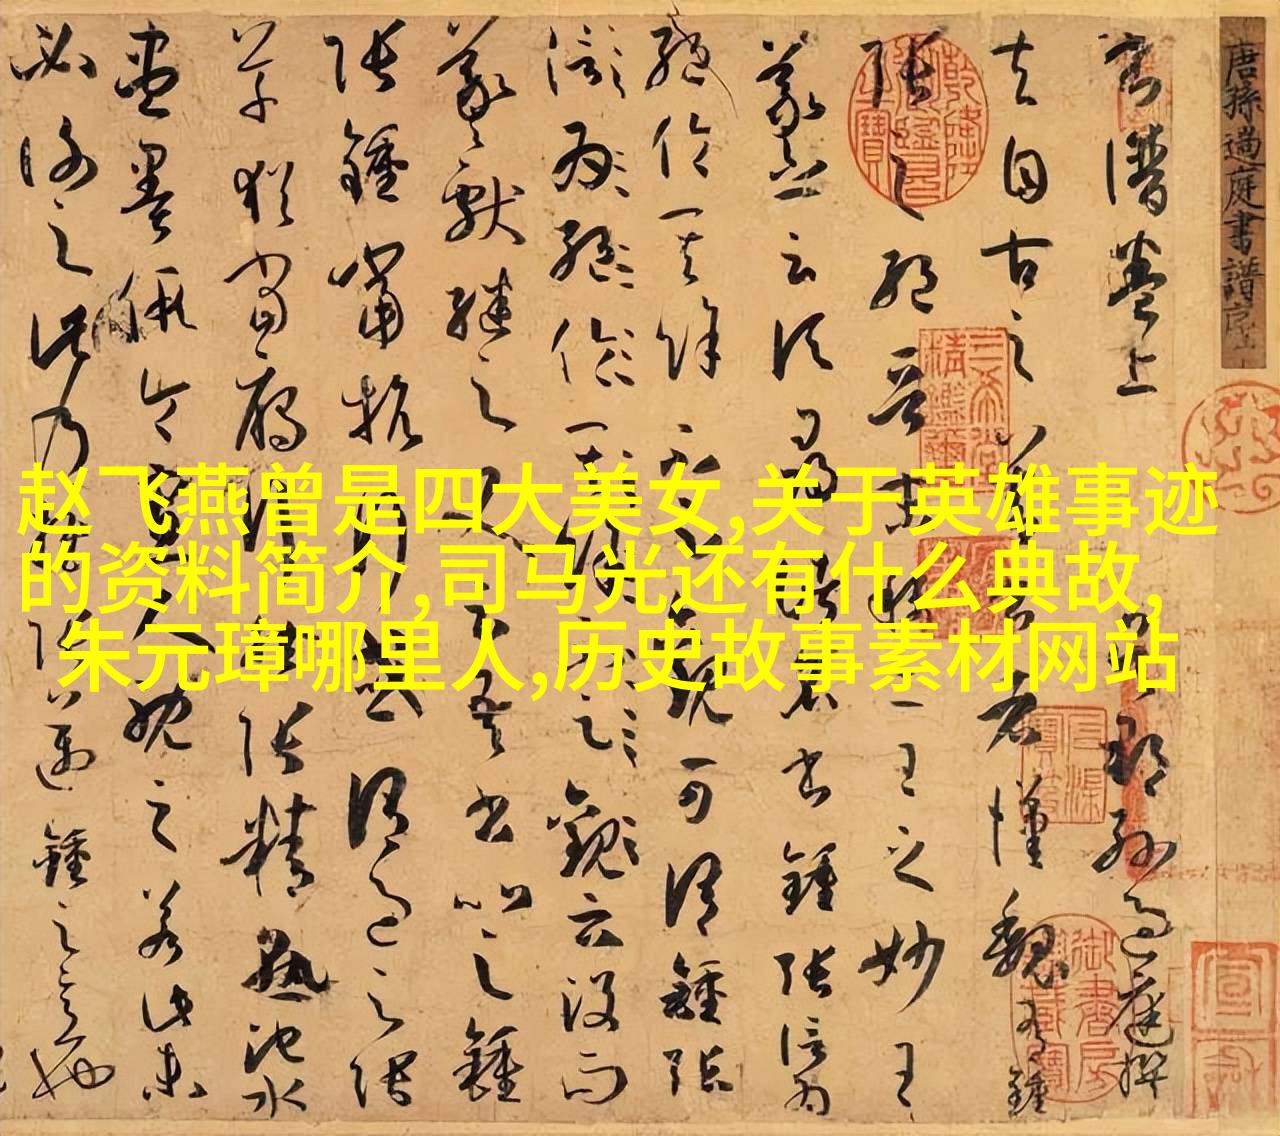 唐孫過庭書譜序
書譜卷上 吳郡孫過庭撰
夫自古之善書者漢魏有鍾
張之絕晉末稱二王之妙王
羲之云頃尋諸名書鍾張信為
絕倫其餘不足觀可謂鍾張
云没而
羲獻繼之又云吾書比之鍾
張鍾當抗行或謂過之張
草猶當鴈行然張精熟池水
盡墨假令寡人耽之若此未
必謝之此乃推張邁鍾之意也
赵飞燕曾是四大美女,关于英雄事迹
的资料简介,司马光还有什么典故,
朱元璋哪里人,历史故事素材网站